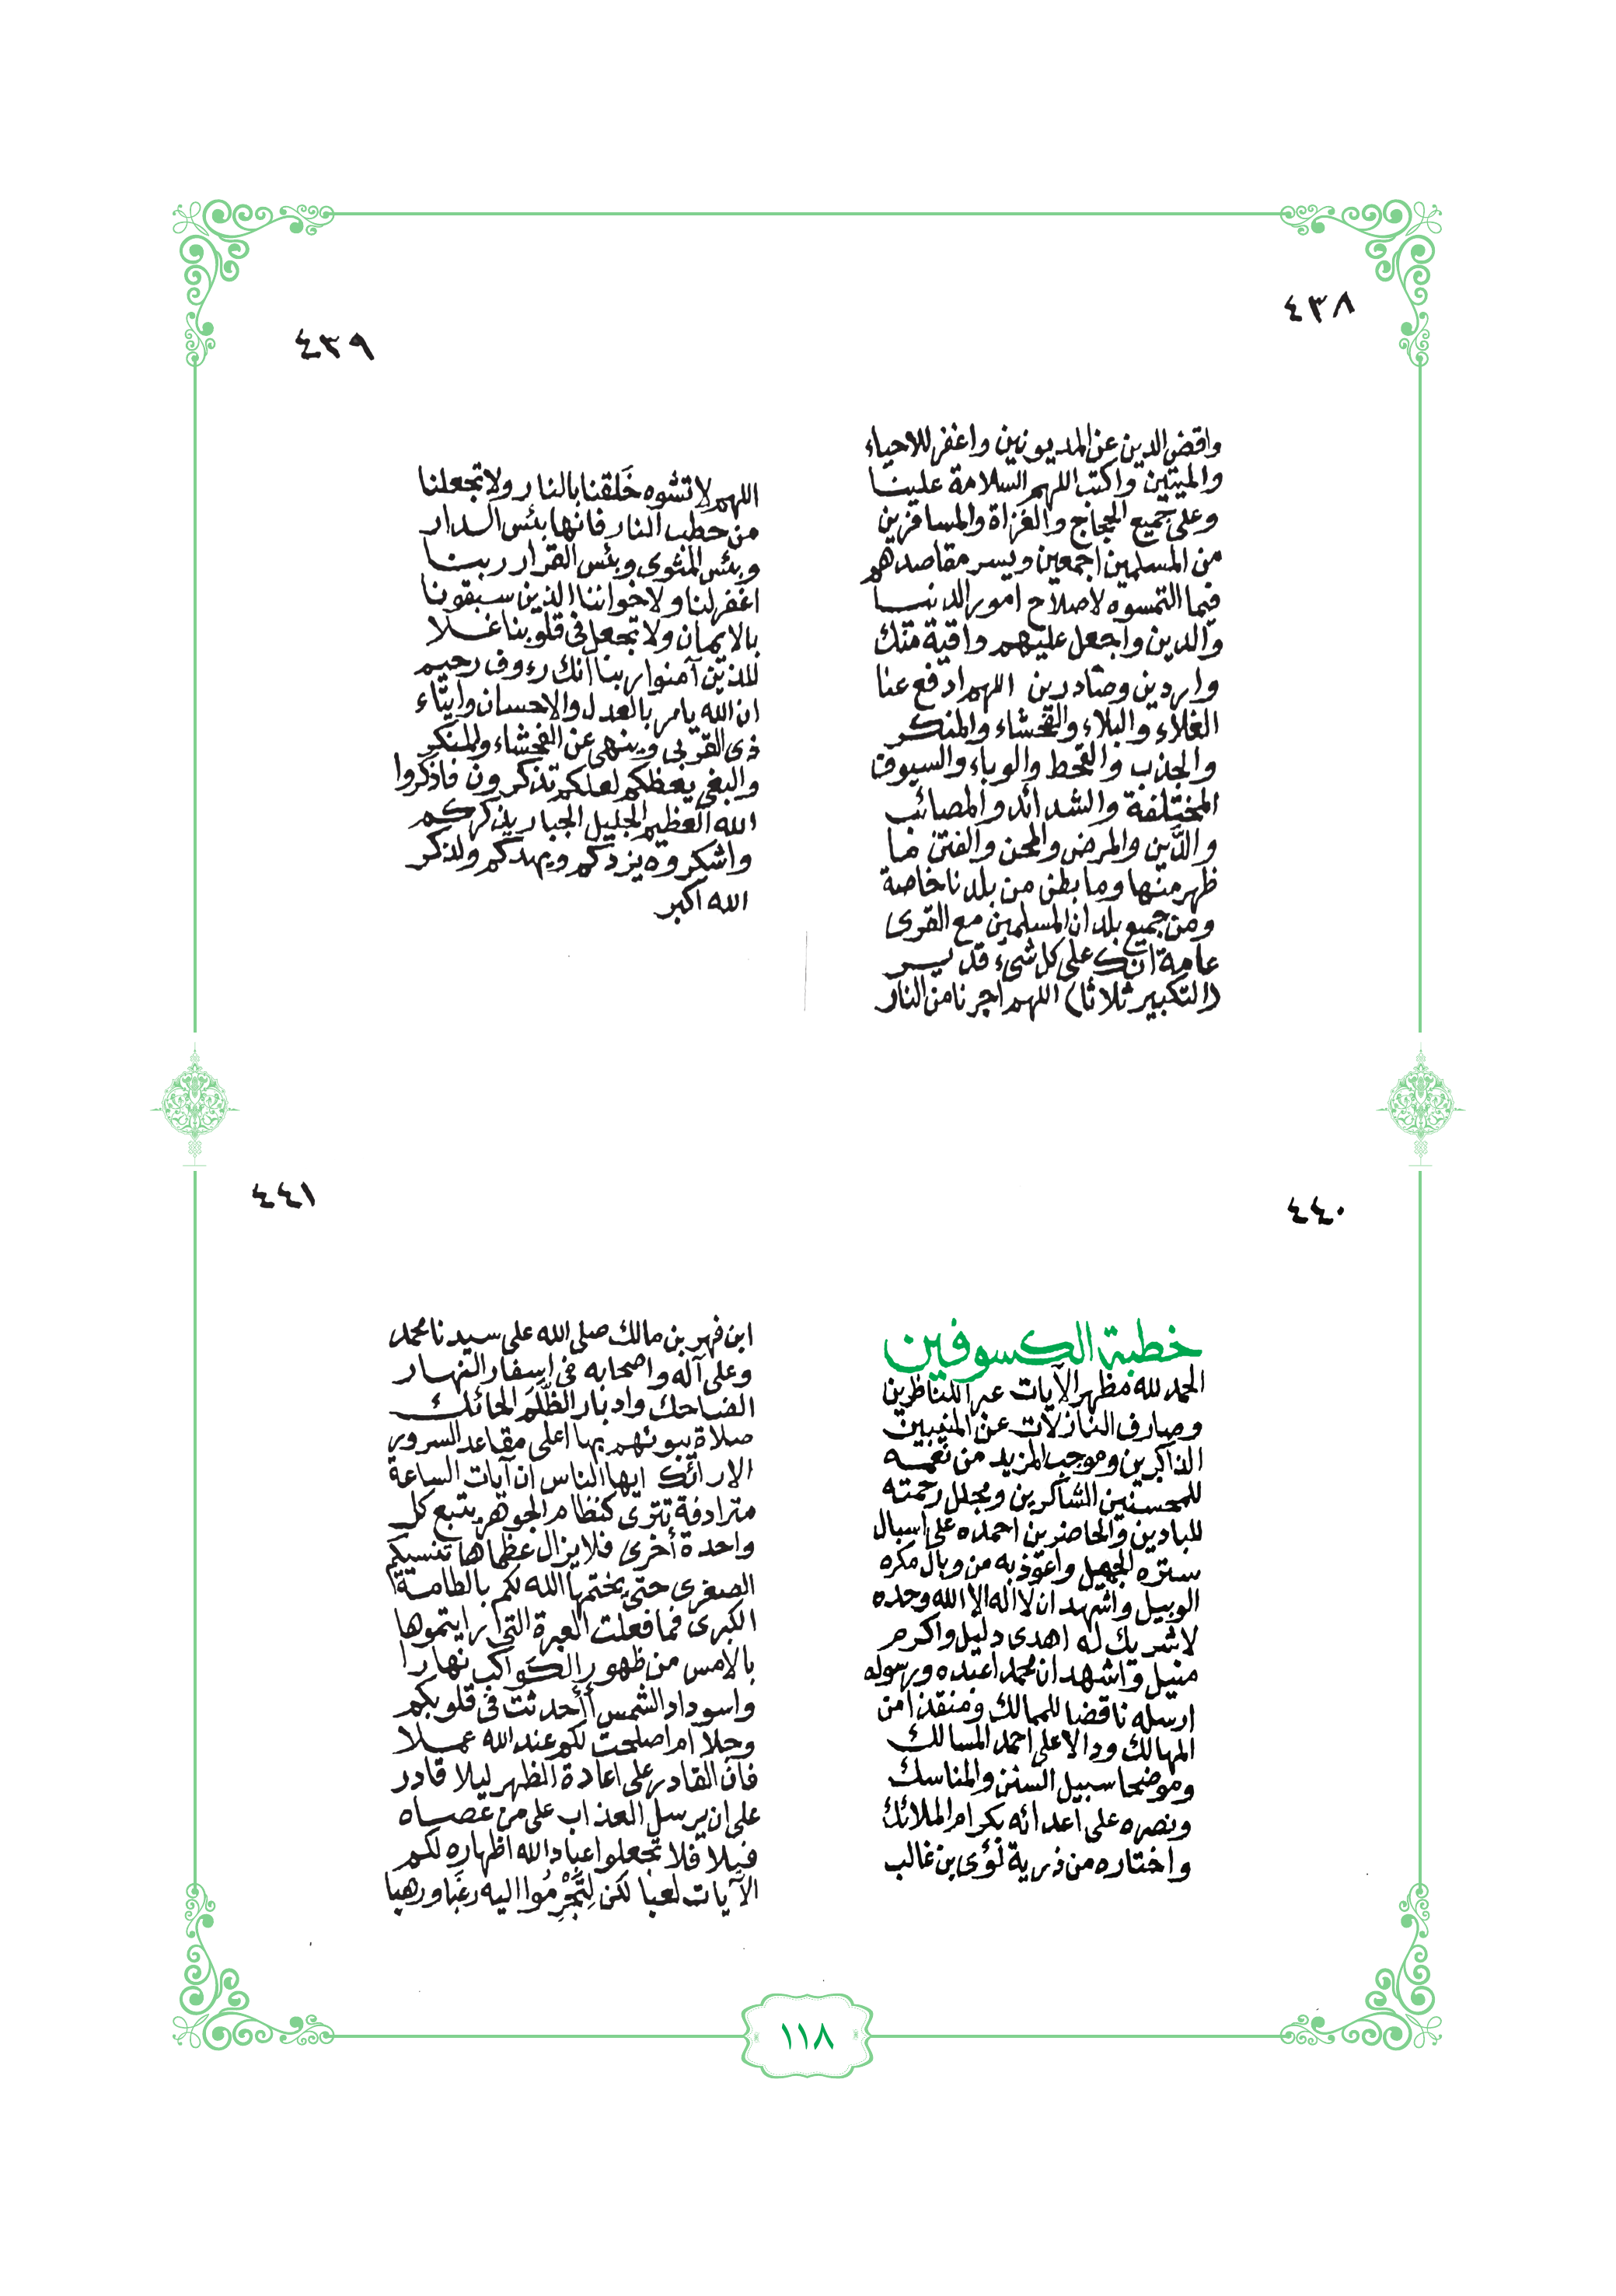 ٤٣٨
واقض الدين عن المديونين واغفر للاحياء
والميتين واكتب اللهم السلامة علينا
وعلى جميع الحجاج والغزاة والمسافرين
من المسلمين اجمعين ويسر مقاصدهم
فيما التمسوه لاصلاح امور الدنيا
والدين واجعل عليهم واقية منك
واردين وصادرين اللهم ادفع عنا
الغلاء والبلاء والفحشاء والمنكر
والجذب والقحط والوباء والسيوف
المختلفة والشدائد والمصائب
والدَّين والمرض والمحن والفتن ما
ظهر منها وما بطن من بلدنا خاصة
ومن جميع بلدان المسلمين مع القرى
عامة انك على كل شىء قدير
(التكبير ثلاثا) اللهم اجرنا من النار
٤٣٩
اللهم لا تشوه خَلقنا بالنار ولا تجعلنا
من حطب النار فانها بئس الدار
وبئس المثوى وبئس القرار ربنا
اغفر لنا ولاخواننا الذين سبقونا
بالايمان ولا تجعل فى قلوبنا غلا
للذين آمنوا ربنا انك رءوف رحيم
ان الله يامر بالعدل والاحسان وايتاء
ذى القربى وينهى عن الفحشاء والمنكر
والبغى يعظكم لعلكم تذكرون فاذكروا
الله العظيم الجليل الجبار يذكركم
واشكروه يزدكم ويهدكم ولذكر
الله اكبر
٤٤٠
خطبة الكسوفين
الحمد لله مظهر الآيات عبرا للناظرين
وصارف النازلات عن المنيبين
الذاكرين وموجب المزيد من نعمه
للمحسنين الشاكرين ومجلل رحمته
للبادين والحاضرين احمده على اسبال
ستره الجميل واعوذ به من وبال مكره
الوبيل واشهد ان لا اله الا الله وحده
لا شريك له اهدى دليل واكرم
منيل واشهد ان محمدا عبده ورسوله
ارسله ناقضا للممالك ومنقذا من
المهالك ودالا على احمد المسالك
وموضحا سبيل السنن والمناسك
ونصره على اعدائه بكرام الملائك
واختاره من ذرية لؤى بن غالب
٤٤١
ابن فهر بن مالك صلى الله على سيدنا محمد
وعلى آله واصحابه فى اسفار النهار
الضاحك وادبار الظُّلَم الحائك
صلاة يبوئهم بها اعلى مقاعد السرور
الارائك ايها الناس ان آيات الساعة
مترادفة تترى كنظام الجوهر يتبع كل
واحدة أخرى فلا يزال عظماها تنسيكم
الصغرى حتى يختمها الله لكم بالطامة
الكبرى فما فعلت العبرة التى رايتموها
بالامس من ظهور الكواكب نهارا
واسوداد الشمس أأحدثت فى قلوبكم
وجلا ام اصلحت لكم عند الله عملا
فان القادر على اعادة الظهر ليلا قادر
على ان يرسل العذاب على من عصاه
قبلا فلا تجعلوا عباد الله اظهاره لكم
الآيات لعبا لكن اليه رغبا ورهبا
١١٨